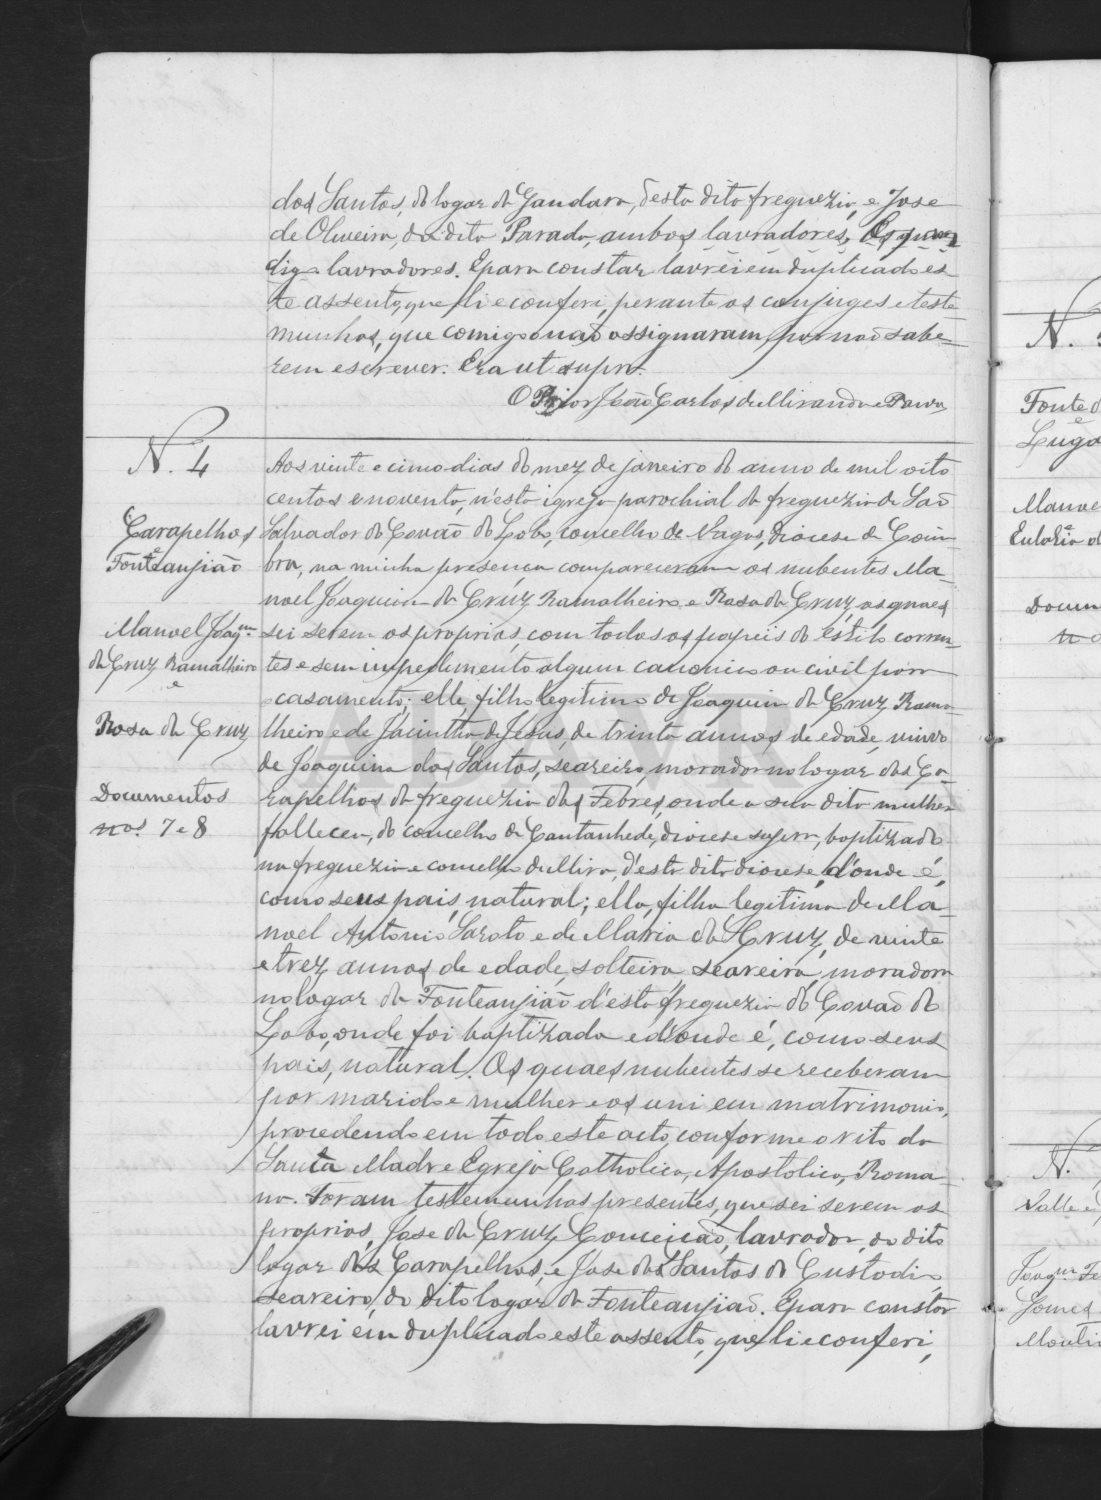 dos Santos, do logar da Gandara, d'esta dita freguezia, e José
de Oliveira, da dita Parada, ambos lavradores,
digo lavradores. E para constar lavrei em duplicado es-
te assento, que li e conferi, perante os conjuges e teste-
munhas, que comigo não assignaram, por não sabe-
rem escrever. Era ut supra.
O Prior João Carlos de Miranda e Paiva
N. 4
Carapelhos
e
Fonteanjião
Manoel Joaqm
da Cruz Ramalheiro
e
Rosa da Cruz
Documentos
nos 7 e 8
Aos vinte e cinco dias do mez de janeiro do anno de mil oito
centos e noventa, n'esta igreja parochial da freguezia de São
Salvador do Covão do Lobo, concelho de Vagos, diocese de Coim-
bra, na minha presença compareceram os nubentes Ma-
noel Joaquim da Cruz Ramalheiro e Rosa da Cruz, os quaes
sei serem os proprios, com todos os papeis do estilo corren-
tes e sem impedimento algum canonico ou civil para
o casamento; elle, filho legitimo de Joaquim da Cruz Rama-
lheiro e de Jacintha de Jesus, de trinta annos de edade, viuvo
de Joaquina dos Santos, seareiro, morador no logar dos Ca-
rapelhos da freguezia das Febres, onde a sua dita mulher
falleceu, do concelho de Cantanhede, diocese supra, baptizado
na freguezia e concelho de Mira, d'esta dita diocese, d'onde é,
como seus pais, natural; ella, filha legitima de Ma-
noel Antonio Saroto e de Maria da Cruz, de vinte
e trez annos de edade, solteira, seareira, moradora
no logar da Fonteanjião d'esta freguezia do Covão do
Lobo, onde foi baptizada e d'onde é, como seus
pais, natural. Os quaes nubentes se receberam
por marido e mulher e os uni em matrimonio,
procedendo em todo este acto, conforme o rito da
Santa Madre Egreja Catholica, Apostolica, Roma-
na. Foram testemunhas presentes, que sei serem os
proprios, José da Cruz Conceição, lavrador, do dito
logar dos Carapelhos, e José dos Santos do Custodio,
seareiro, do dito logar da Fonteanjião. E para constar
lavrei em duplicado este assento, que li e conferi,
N.
Fonte d
e
Lugo
Manoe
Eulalia d
Docum
no
N.
Valle e
Joaqm Fe
Gomes